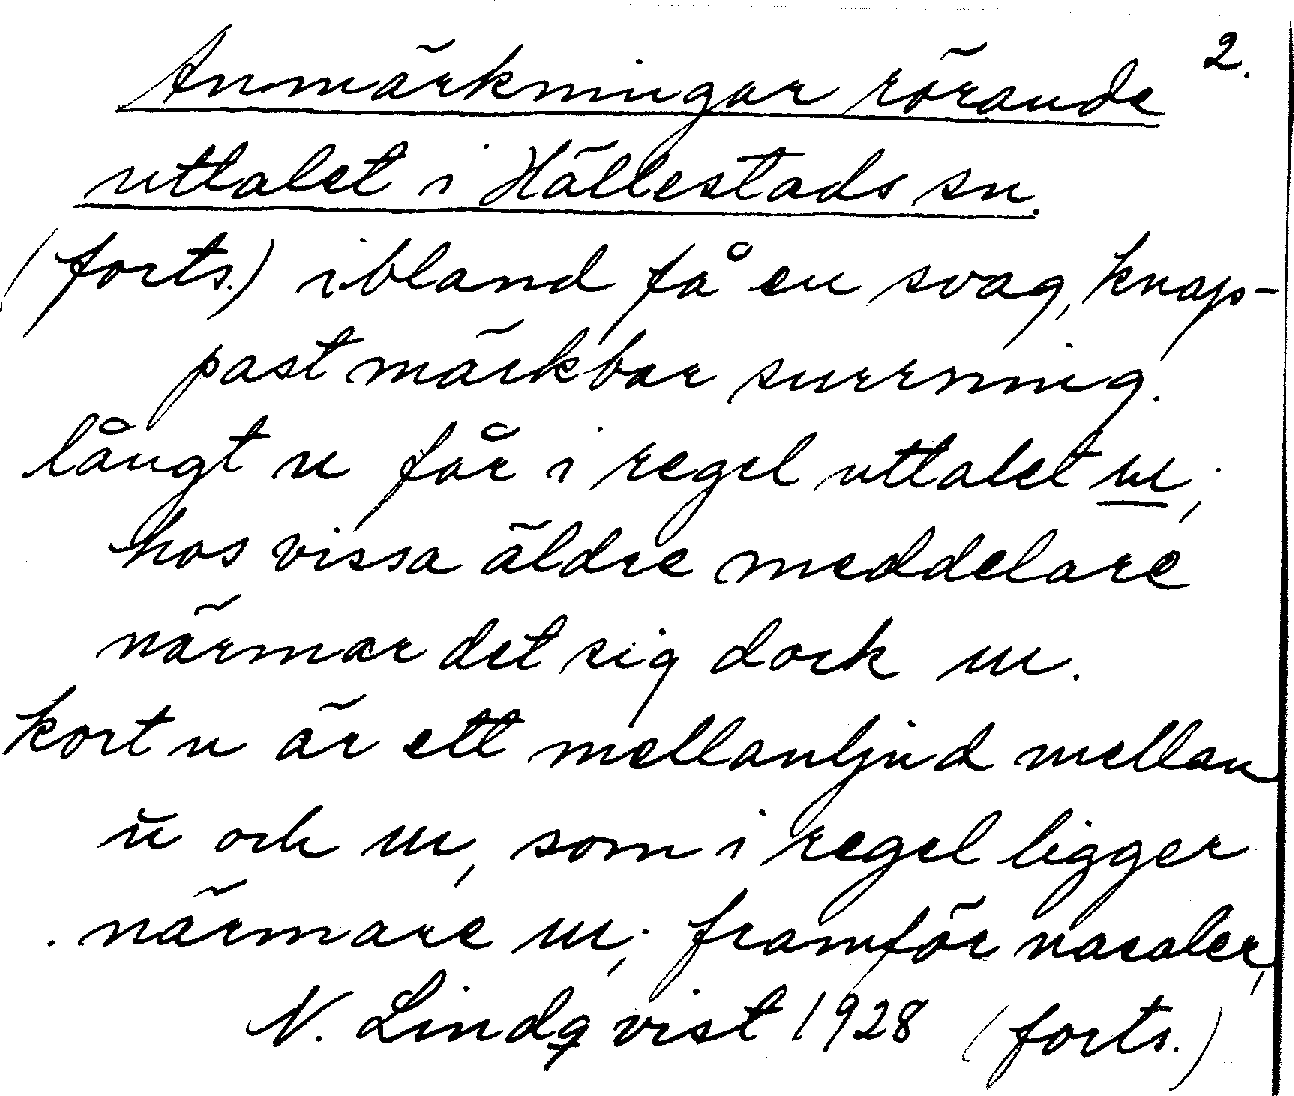 2.
Anmärkningar rörande
uttalet i Hällestads sn.
(forts.) ibland få en svag, knap-
past märkbar surrning.
långt u får i regel uttalet ɯ;
hos vissa äldre meddelare
närmar det sig dock ɯ.
kort u är ett mellanljud mellan
ŭ och ɯ, som i regel ligger
närmare ɯ; framför nasaler,
N. Lindqvist 1928 (forts.)